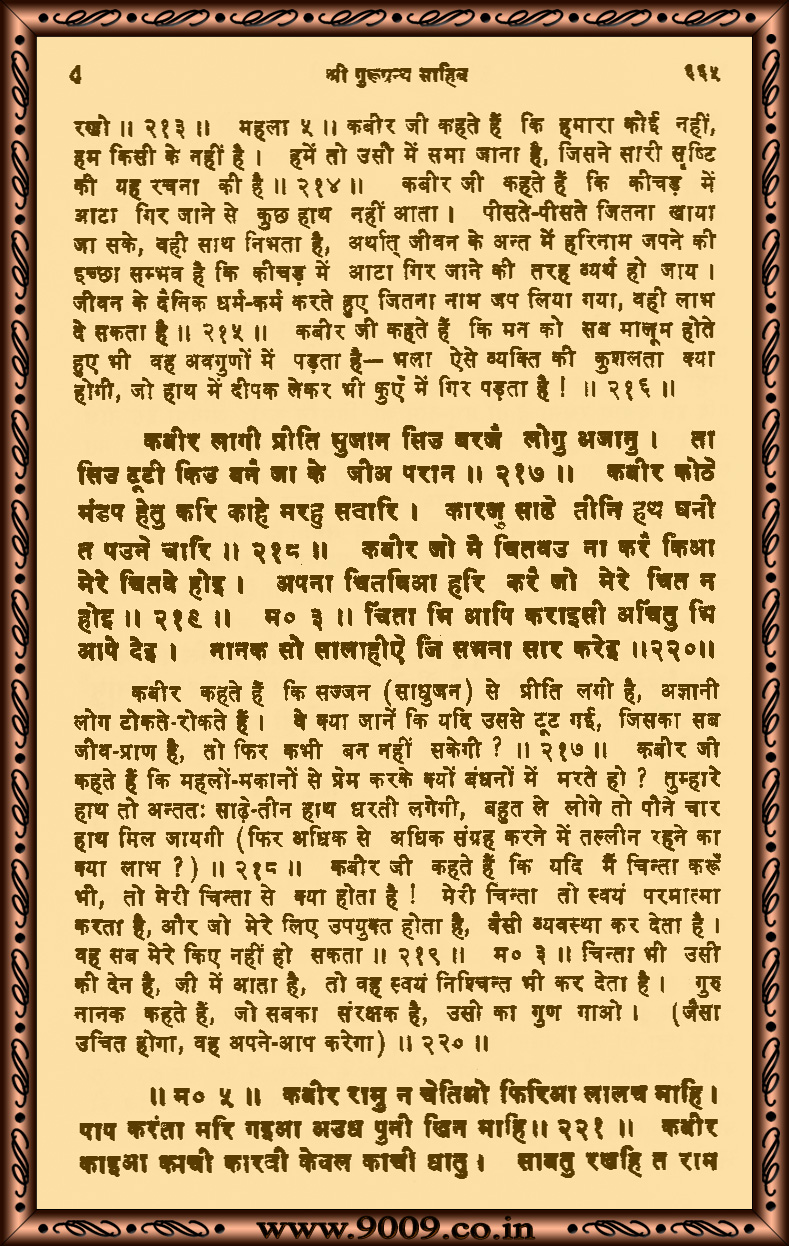 4 श्री गुरूग्रन्थ साहिब ६६५
रखो ॥ २१३ ॥ महला ५ ॥ कबीर जी कहते हैं कि हमारा कोई नहीं,
हम किसी के नहीं है । हमें तो उसी में समा जाना है, जिसने सारी सृष्टि
की यह रचना की है ॥ २१४ ॥ कबीर जी कहते हैं कि कीचड़ में
आटा गिर जाने से कुछ हाथ नहीं आता । पीसते-पीसते जितना खाया
जा सके, वही साथ निभता है, अर्थात् जीवन के अन्त में हरिनाम जपने की
इच्छा सम्भव है कि कीचड़ में आटा गिर जाने की तरह व्यर्थ हो जाय ।
जीवन के दैनिक धर्म-कर्म करते हुए जितना नाम जप लिया गया, वही लाभ
दे सकता है ॥ २१५ ॥ कबीर जी कहते हैं कि मन को सब मालूम होते
हुए भी वह अवगुणों में पड़ता है— भला ऐसे व्यक्ति की कुशलता क्या
होगी, जो हाथ में दीपक लेकर भी कुएँ में गिर पड़ता है ! ॥ २१६ ॥
कबीर लागी प्रीति सुजान सिउ बरजै लोगु अजानु । ता
सिउ टूटी किउ बनै जा के जीअ परान ॥ २१७ ॥ कबीर कोठे
मंडप हेतु करि काहे मरहु सवारि । कारजु साढे तीनि हथ घनी
त पउने चारि ॥ २१८ ॥ कबीर जो मै चितवउ ना करै किआ
मेरे चितवे होइ । अपना चितविआ हरि करै जो मेरे चित न
होइ ॥ २१९ ॥ म० ३ ॥ चिंता भि आपि कराइसी अचिंतु भि
आपे देइ । नानक सो सालाहीऐ जि सभना सार करेइ ॥२२०॥
कबीर कहते हैं कि सज्जन (साधुजन) से प्रीति लगी है, अज्ञानी
लोग टोकते-रोकते हैं । वे क्या जानें कि यदि उससे टूट गई, जिसका सब
जीव-प्राण है, तो फिर कभी बन नहीं सकेगी ? ॥ २१७ ॥ कबीर जी
कहते हैं कि महलों-मकानों से प्रेम करके क्यों बंधनों में मरते हो ? तुम्हारे
हाथ तो अन्ततः साढ़े-तीन हाथ धरती लगेगी, बहुत ले लोगे तो पौने चार
हाथ मिल जायगी (फिर अधिक से अधिक संग्रह करने में तल्लीन रहने का
क्या लाभ ?) ॥ २१८ ॥ कबीर जी कहते हैं कि यदि मैं चिन्ता करूँ
भी, तो मेरी चिन्ता से क्या होता है ! मेरी चिन्ता तो स्वयं परमात्मा
करता है, और जो मेरे लिए उपयुक्त होता है, वैसी व्यवस्था कर देता है ।
वह सब मेरे किए नहीं हो सकता ॥ २१९ ॥ म० ३ ॥ चिन्ता भी उसी
की देन है, जी में आता है, तो वह स्वयं निश्चिन्त भी कर देता है । गुरु
नानक कहते हैं, जो सबका संरक्षक है, उसी का गुण गाओ । (जैसा
उचित होगा, वह अपने-आप करेगा) ॥ २२० ॥
॥ म० ५ ॥ कबीर रामु न चेतिओ फिरिआ लालच माहि ।
पाप करंता मरि गइआ अउध पुनी खिन माहि ॥ २२१ ॥ कबीर
काइआ काची कारवी केवल काची धातु । साबतु रखहि त राम
www.9009.co.in